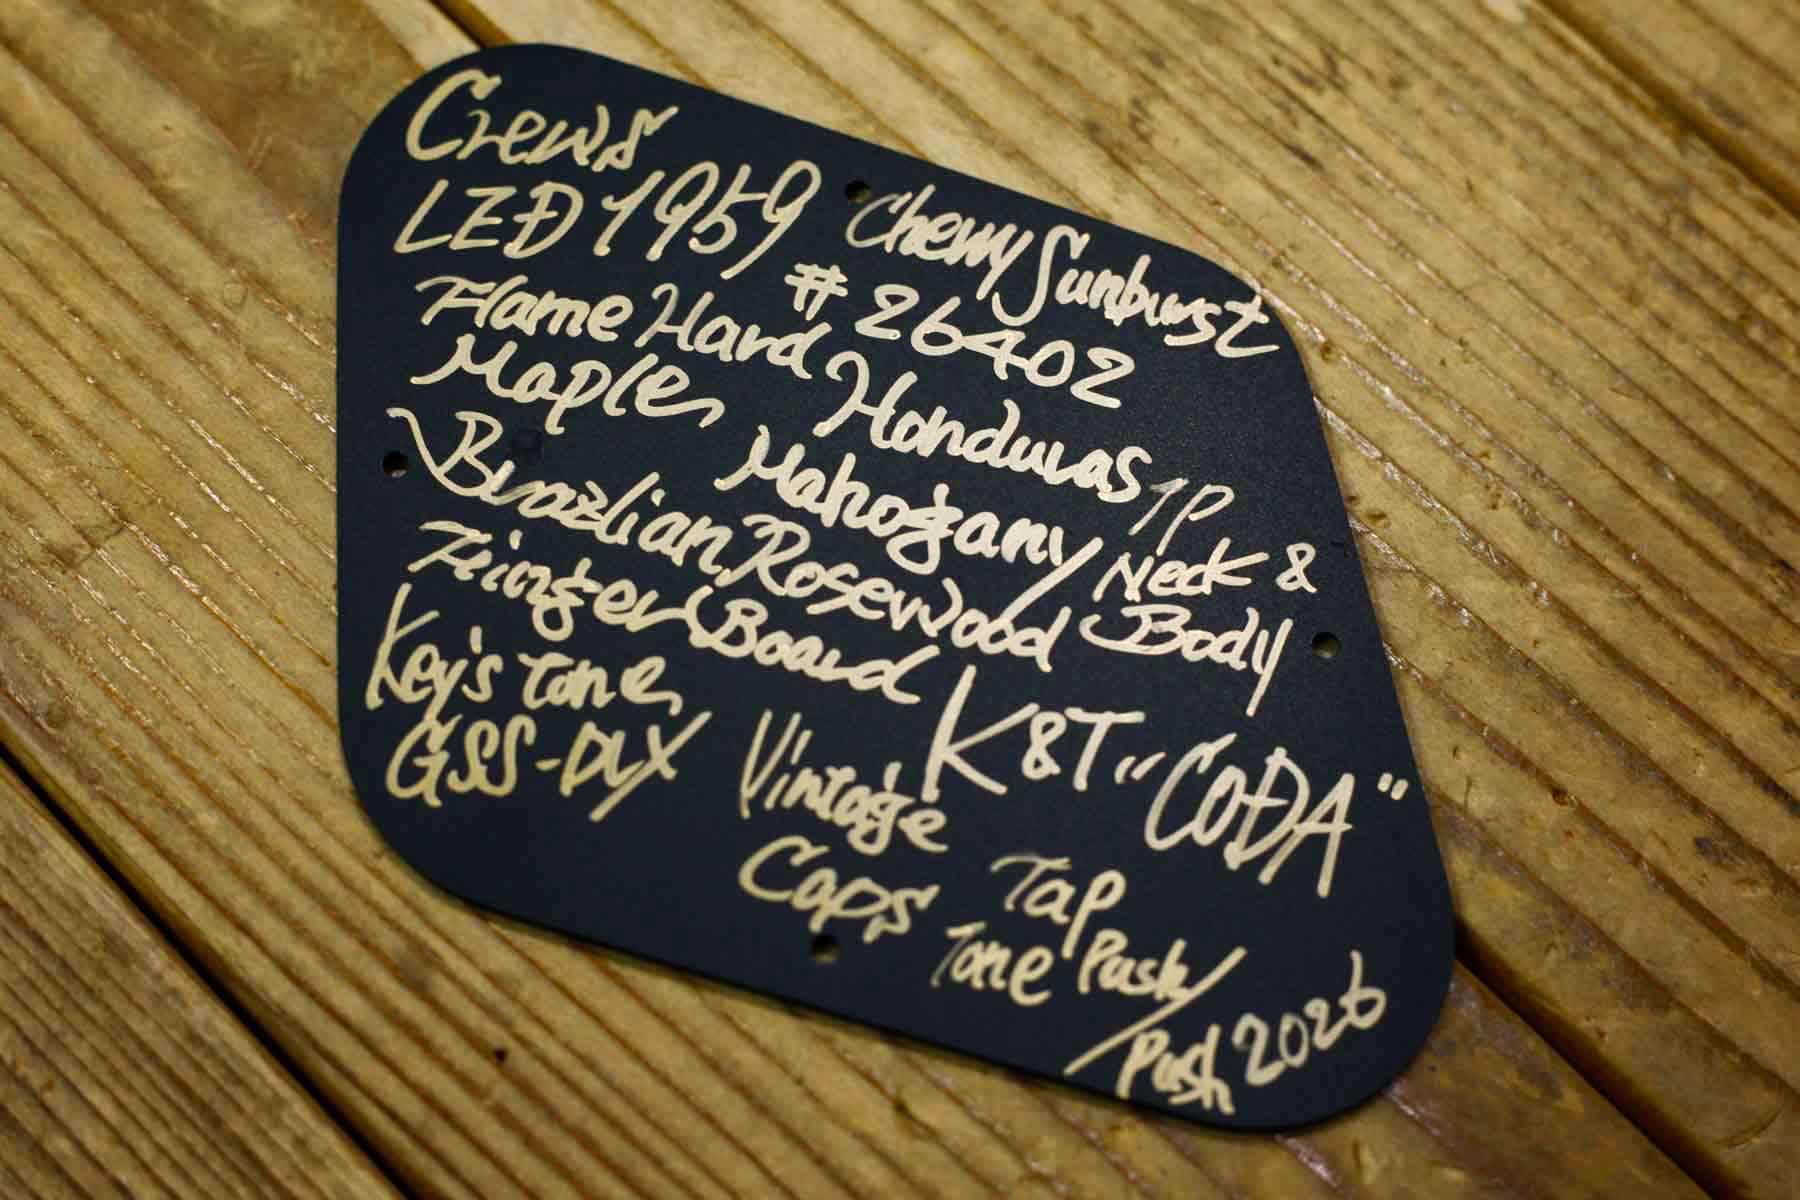 Crews
LED 1959 Cherry Sunburst
# 26402
Flame Hard Maple,
Honduras Mahogany 1P Neck & Body
Brazlian Rosewood
Fingerboard
Key's tone,
GSS-DLX
K&T "CODA"
Vintage
Caps
Tap
Tone Push/
Push 2026